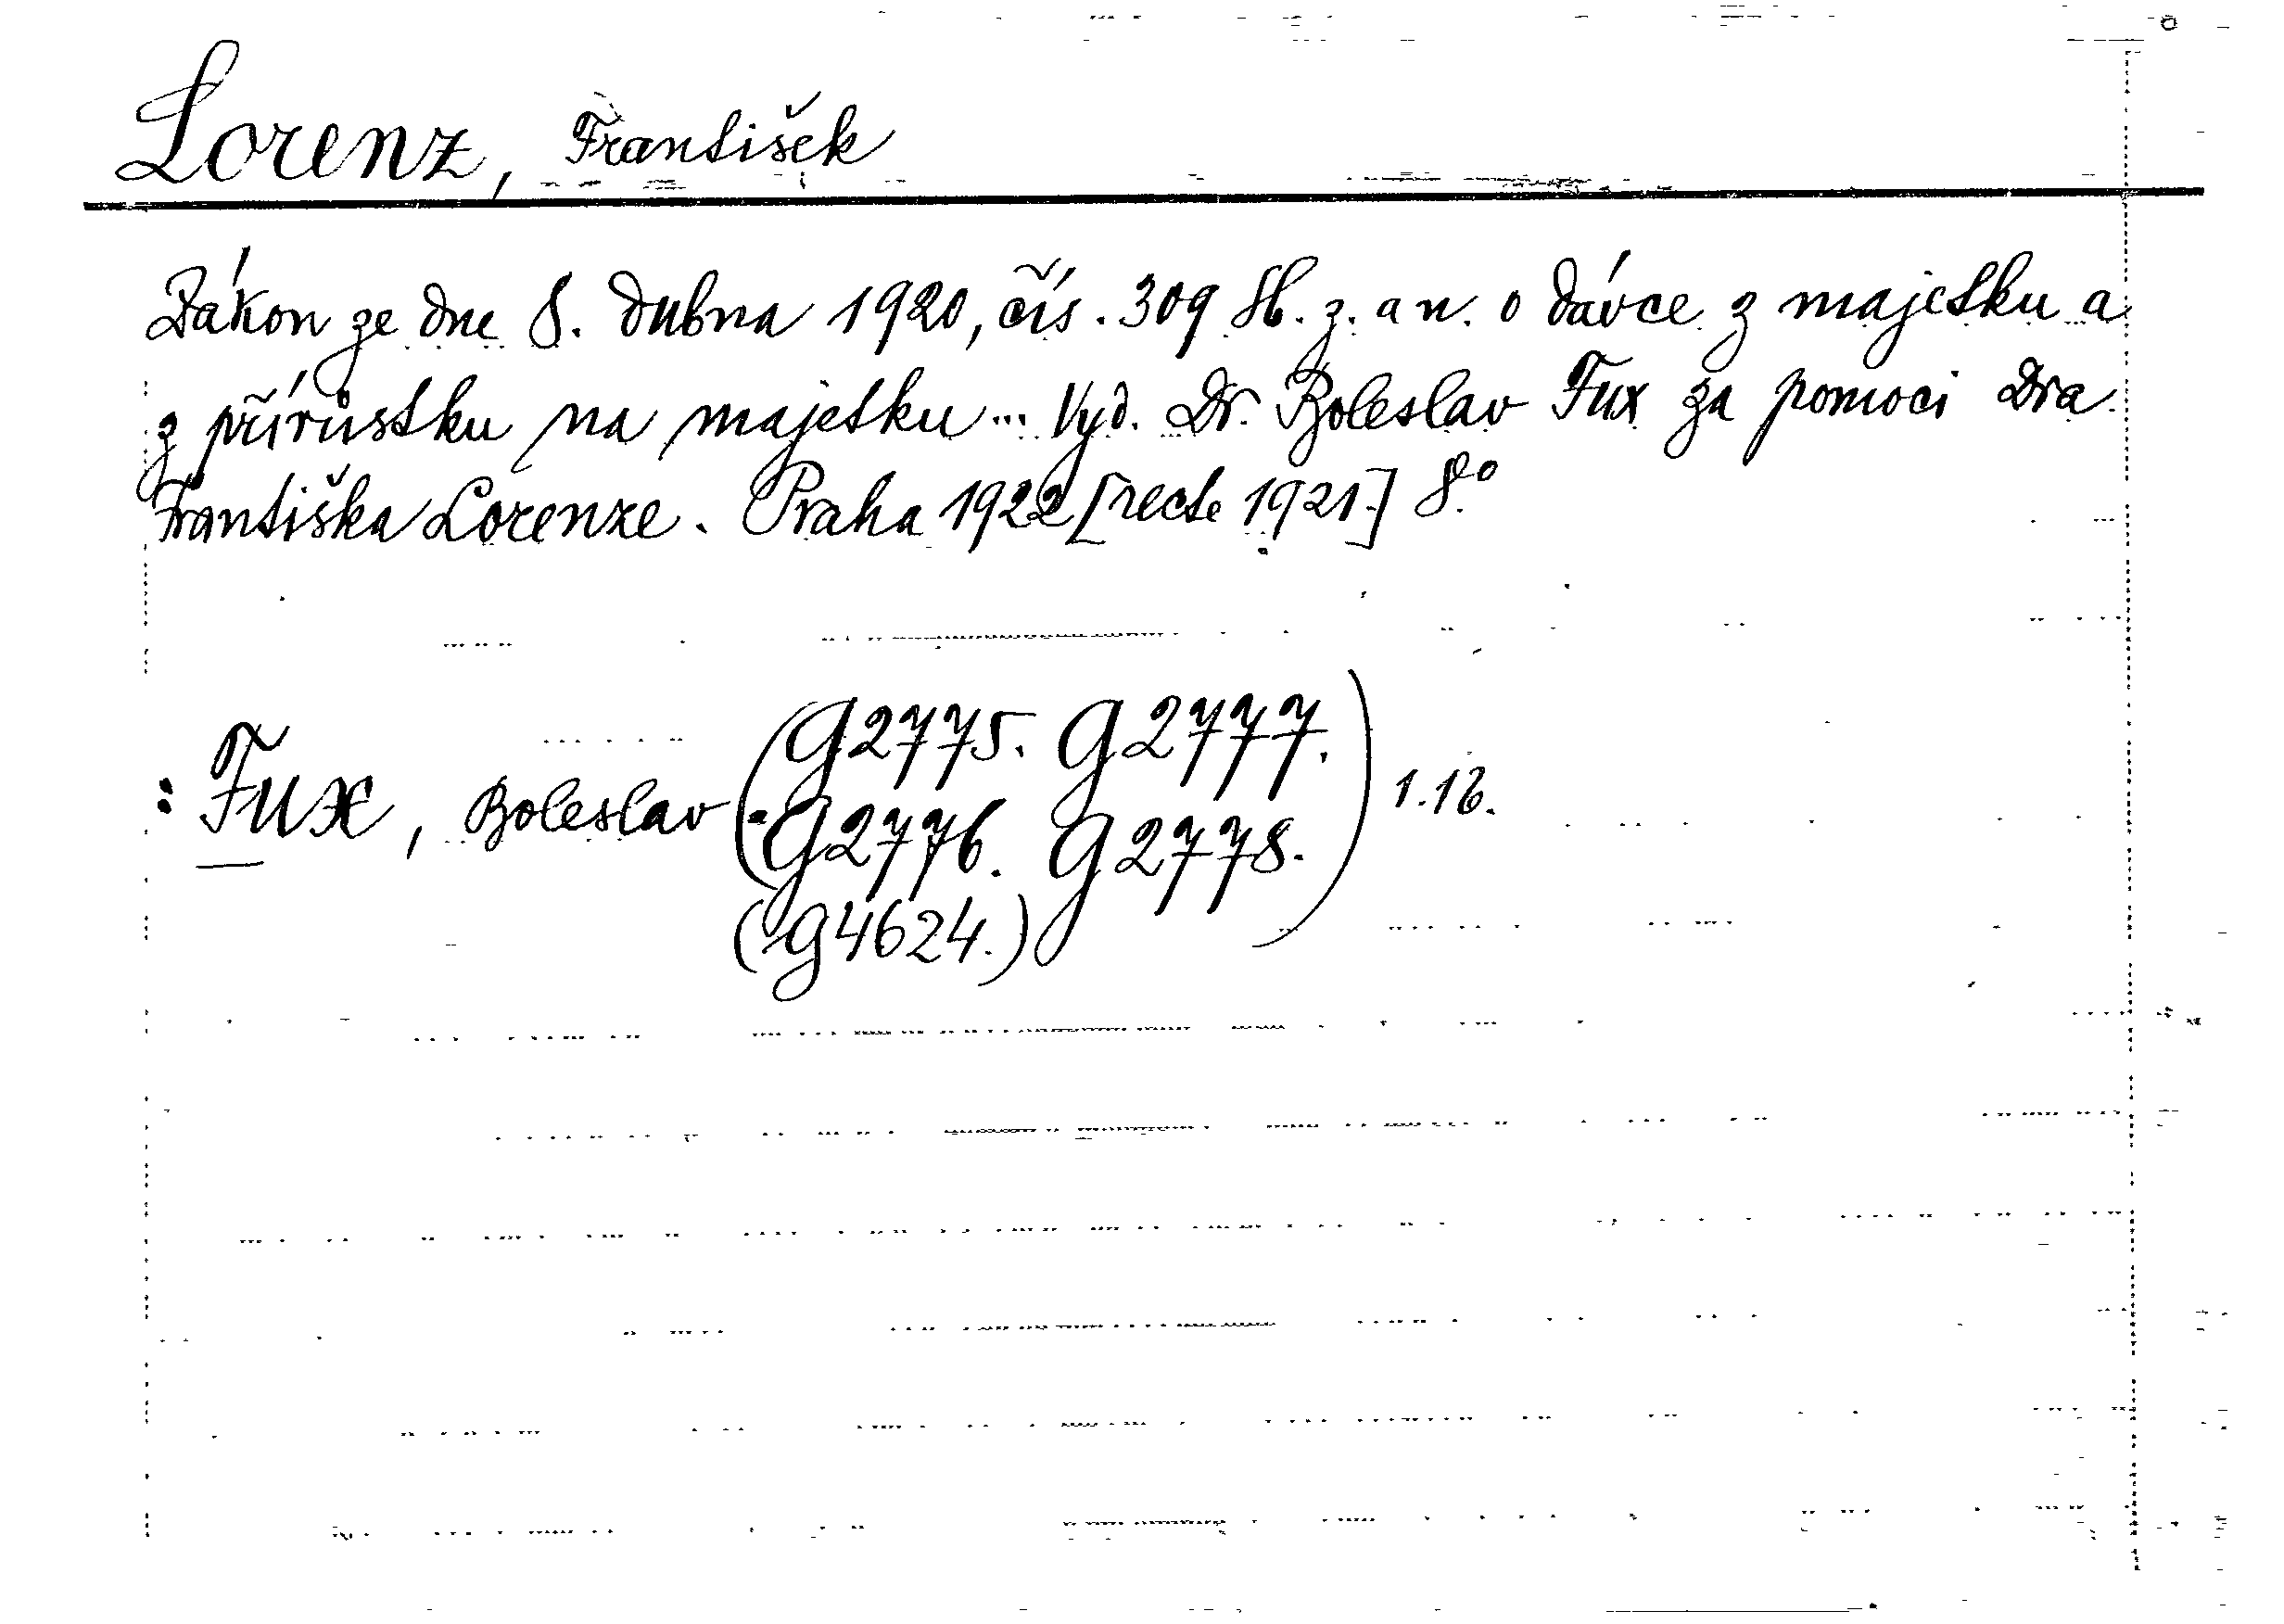 Lorenz, František
Zákon ze dne 8. dubna 1920, čís. 309 Sb. z. a n. o dávce z majetku a
z přírůstku na majetku... Vyd. Dr. Boleslav Fux za pomoci Dra
Františka Lorenze. Praha 1922 [recte 1921.] 8.°
: Fux, Boleslav (G2775. G2777.
G2776. G2778.) 1.18.
(G4624.)